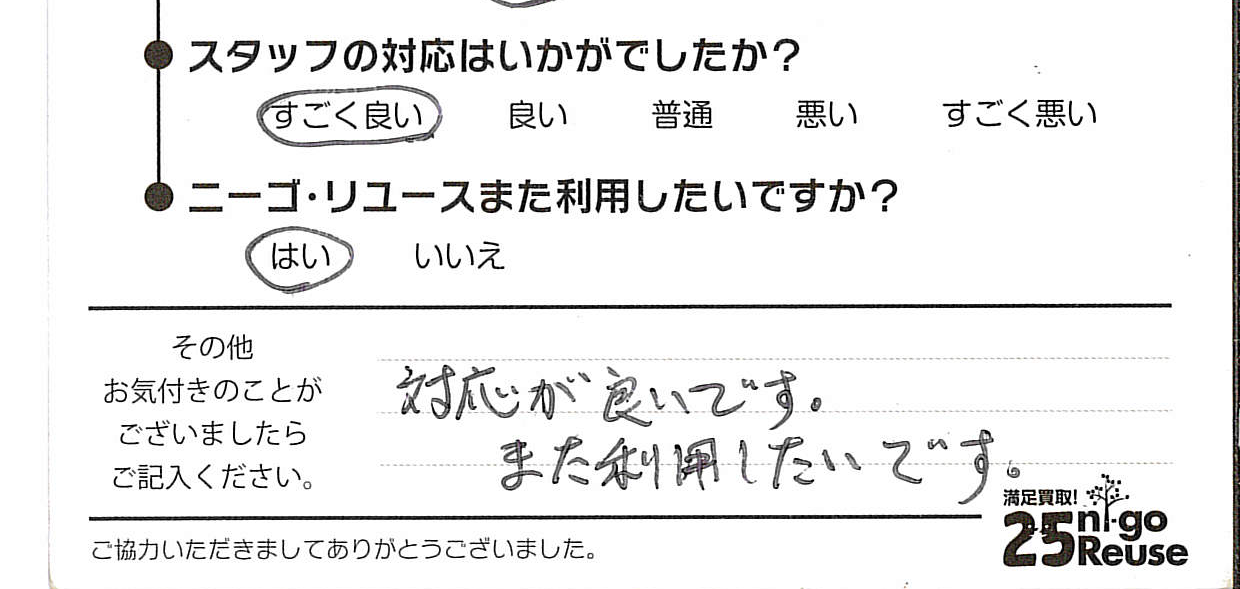 スタッフの対応はいかがでしたか?
すごく良い 良い 普通 悪い すごく悪い
ニーゴ・リユースまた利用したいですか?
はい いいえ
その他
お気付きのことが
ございましたら
ご記入ください。
対応が良いです。
また利用したいです。
満足買取!
25 ni-go
Reuse
ご協力いただきましてありがとうございました。